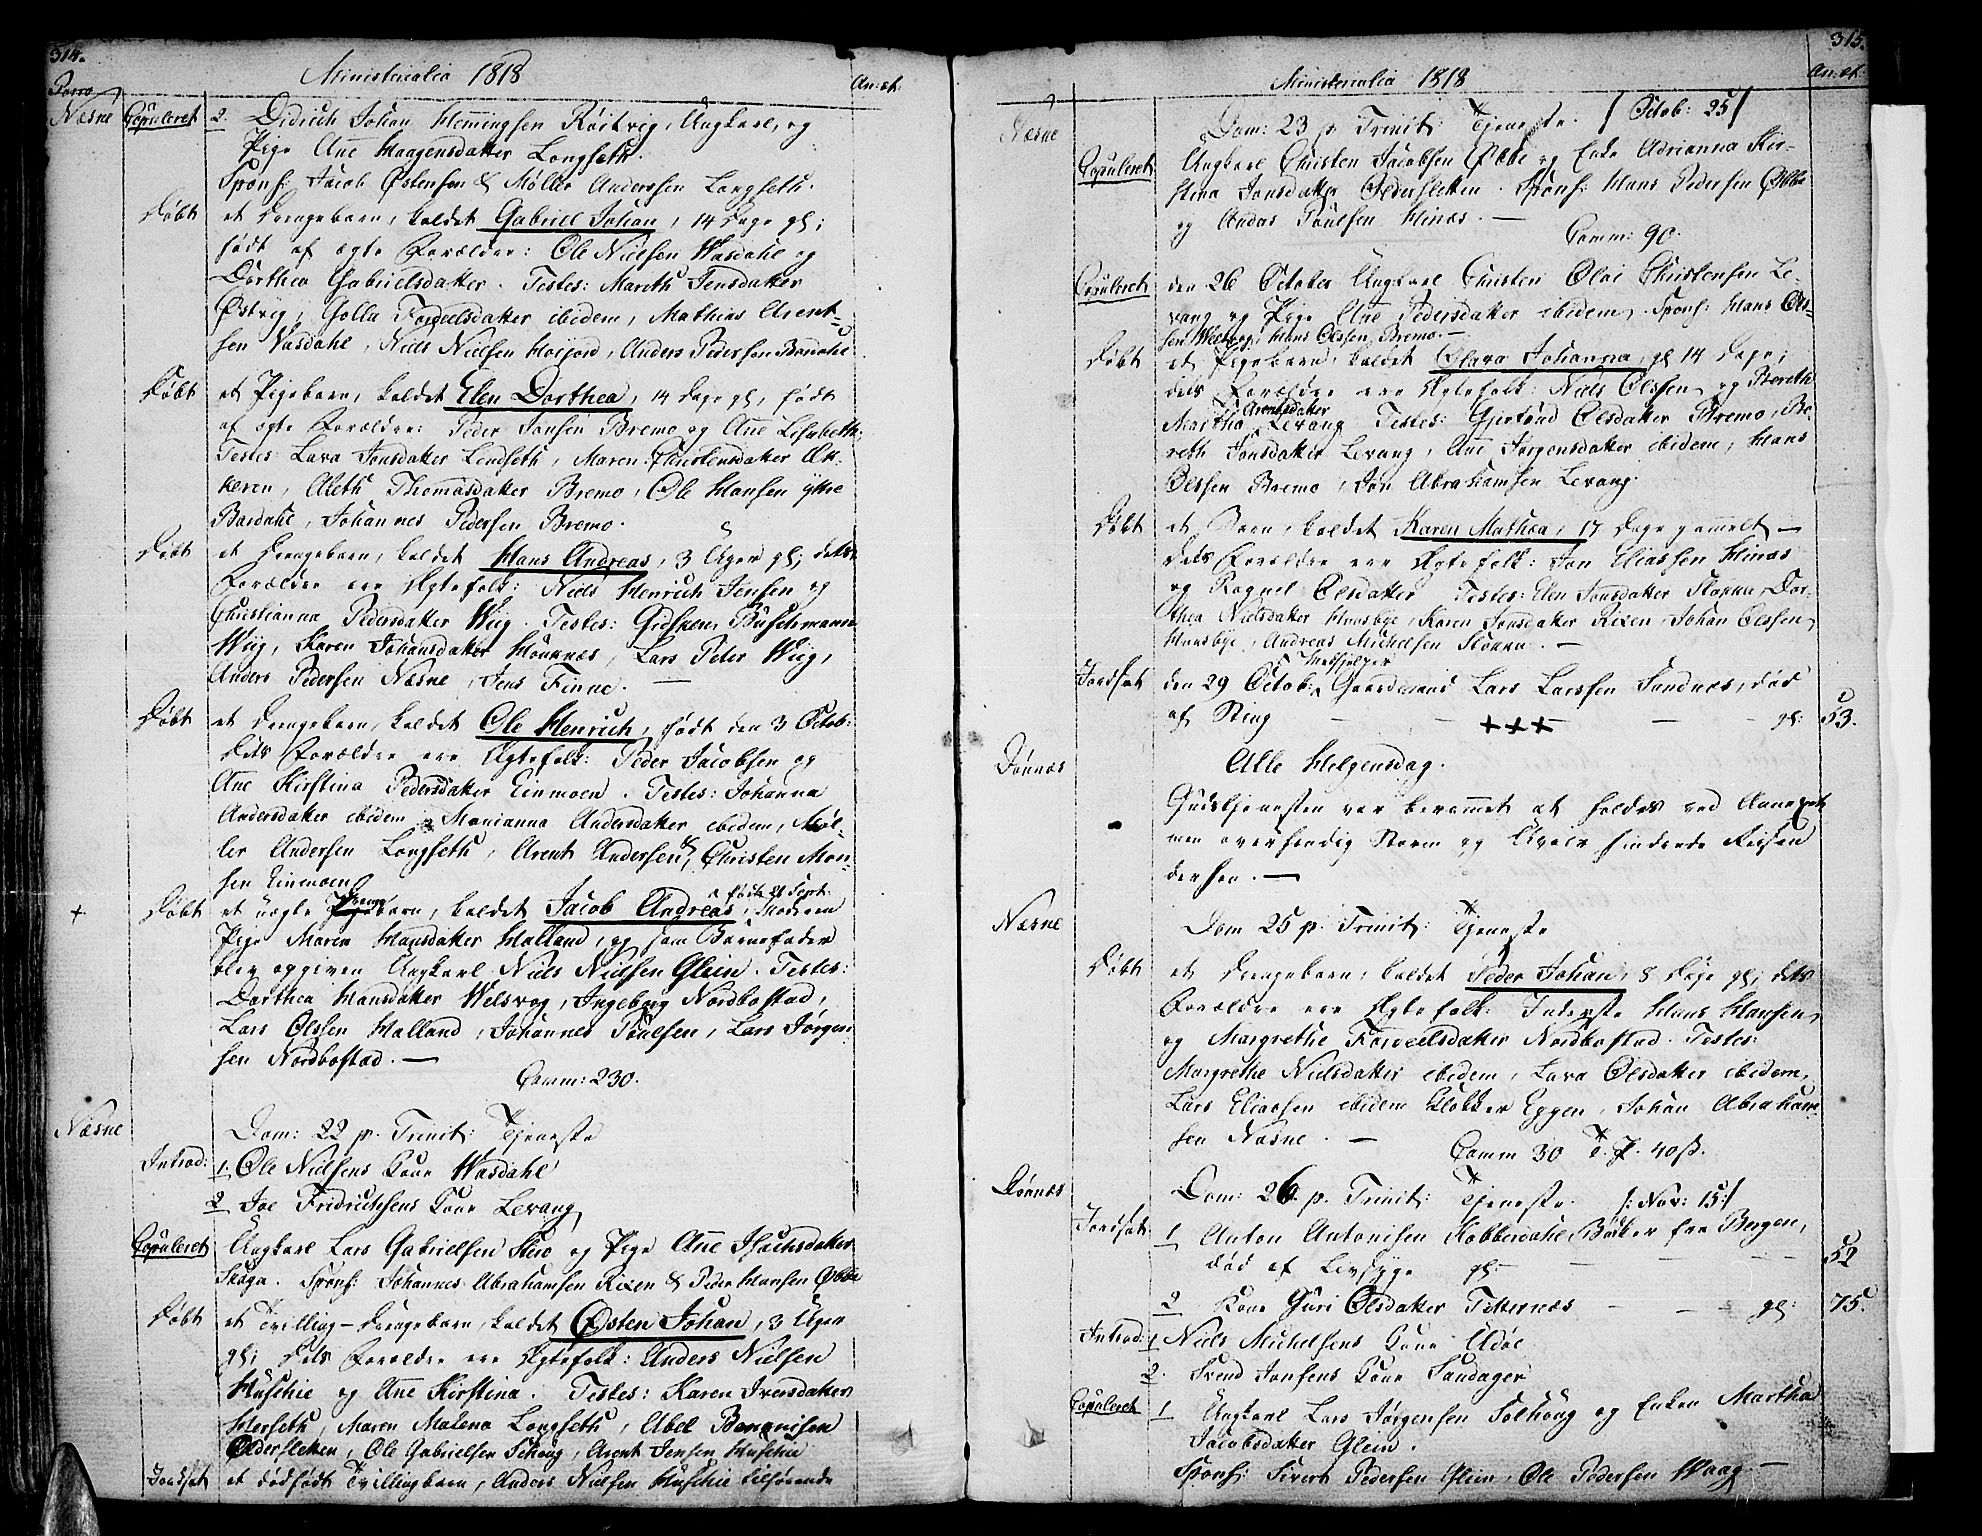 314.
Ministerialia 1818
An: æt:
Porro
Næsne
Copuleret
2. Didrich Johan Flemmingsen Röitvig, Ungkarl, og
Pige Ane Haagensdatter Longseth.
Spons: Jacob Østensen & Møller Anderssen Longseth.
Døbt
et Drengebarn, kaldet Gabriel Johan, 14 Dage gl;
født af ægte Forældre: Ole Nielsen Wasdahl og
Dorthea Gabrielsdatter. Testes: Mareth Jensdatter
Østvig, Golla ibidem, Mathias Arent-
sen Vasdahl, Niels Nielsen Høijord, Anders Pedersen Bardahl
Døbt
et Pigebarn, kaldet Elen Dorthea, 14 Dage gl, født
af ægte Forældre: Peder Jonsen Bremo og Ane Lisabeth
Testes: Lava Jonsdatter Lendseth, Maren Christensdatter Ak-
keren, Aleth Thomasdatter Bremo, Ole Hansen ytre
Bardahl, Johannes Pedersen Bremo.
Døbt
et Drengebarn, kaldet Hans Andreas, 3 Uger gl; dets
Forældre ere Ægtefolk: Niels Henrich Jensen og
Christianna Pedersdatter Wiig. Testes: Gidsken Buschmann
Wiig, Karen Johansdatter Houknæs, Lars Peter Wiig,
Anders Pedersen Næsne, Jens Finne. —
Døbt
et Drengebarn, kaldet Ole Henrich, født den 3 Octob:
Dets Forældre ere Ægtefolk: Peder Jacobsen og
Ane Kirstina Pedersdatter Einmoen. Testes: Johanna
Andersdatter ibidem, Marianna Andersdatter ibidem, Møl-
ler Andersen Longseth, Arent Andersen & Christen Mon-
sen Einmoen
+ Døbt
et uægte Drengebarn, kaldet Jacob Andreas, født 21 Sept. Moderen
Pige Maren Hansdatter Halland, og som Barnefader
blev opgiven Ungkarl Niels Nielsen Glein. Testes:
Dorthea Hansdatter Welsvog, Ingeborg Nordbostad,
Lars Olssen Halland, Johannes Poulsen, Lars Jørgen-
sen Nordbostad. —
Comm: 230.
Næsne
Dom: 22 p. Trinit: Tjeneste
Introd:
1. Ole Nielsens Kone Wasdahl
2 Joe Fridrichsens Kone Levang
Copuleret
Ungkarl Lars Gabrielsen Skeo og Pige Ane Isachsdatter
Skoga. Spons: Johannes Abrahamsen Rixen & Peder Hansen Øbbe
Døbt
et Tvilling-Drengebarn, kaldet Østen Johan, 3 Uger
gl; Dets Forældre ere Ægtefolk: Anders Nielsen
Huschie og Ane Kirstina. Testes: Karen Iversdatter
Herseth, Maren Malena Longseth, Abel Benonisen
Oldersletten, Ole Gabrielsen Sehoug, Arent Jensen Huschie
Jordsat
et dødfødt Tvillingbarn, Anders Nielsen Huschie tilhørende
315.
Ministerialia 1818
An: æt:
Næsne
Dom: 23 p. Trinit: Tjeneste. / Octob: 25 /
Copuleret
Ungkarl Christen Jacobsen Øbbe og Enke Adrianna Kir-
stina Jonsdatter Oldersletten. Spons: Hans Pedersen Øbbe
og Andas Poulsen Hinæs. —
Comm: 90.
Copuleret
den 26 October Ungkarl Christen Olai Christensen Le-
vang og Pige Ane Pedersdatter ibidem. Spons: Hans Ols-
sen Welsvog, Hans Olssen, Bremo. —
Døbt
et Pigebarn, kaldet Olava Johanna, gl 14 Dage;
dets Forældre ere Ægtefolk: Niels Olssen og Bereth
Martha Arentsdatter Levang Testes: Gjertrud Olsdatter Bremo, Be-
reth Jonsdatter Levang, Ane Jørgensdatter ibidem, Hans
Olssen Bremo, Jon Abrahamsen Levang.
Døbt
et Barn, kaldet Karen Mathea, 17 Dage gammelt —
dets Forældre ere Ægtefolk: Jon Eliassen Hinæs
og Ragnel Olsdatter Testes: Elen Jonsdatter Stokka, Dor-
thea Nielsdatter Huusbye, Karen Jonsdatter Rixen, Johan Olssen
Huusbye, Andreas Michelsen Stokka. —
Jordsat
den 29 Octob: Medhjelper Gaardmand Lars Larssen Sandnæs, død
af Sting — +++ — gl: 53.
Dønnæs
Alle Helgensdag.
Gudstjenesten var berammet at holdes ved Annexet
men overhændig Storm og Uveir hindrede Reisen
derhen. —
Næsne
Dom 25 p. Trinit: Tjeneste
Døbt
et Drengebarn, kaldet Peder Johan, 8 Dage gl; dets
Forældre ere Ægtefolk: Inderste Hans Hansen
og Margrethe Nordbostad. Testes:
Margrethe Nielsdatter ibidem, Lava Olsdatter ibidem,
Lars Eliassen ibidem Klokker Eggen, Johan Abraham-
sen Næsne. —
Comm 30 40 ß.
Dønnæs
Dom: 26 p. Trinit: Tjeneste. /: Nov: 15 :/
Jordsat
1 Anton Antonisen Kobberdahl Bøcker fra Bergen,
død af Levsyge gl — 52
2 Kone Guri Olsdatter Titternæs — gl: 75.
Introd:
1 Niels Michelsens Kone Udøe
2. Svend Jonsens Kone Sandager
Copuleret
1 Ungkarl Lars Jørgensen Solhoug og Enken Martha
Jacobsdatter Glein.
Spons: Sivert Pedersen Glein, Ole Pedersen Waag. —